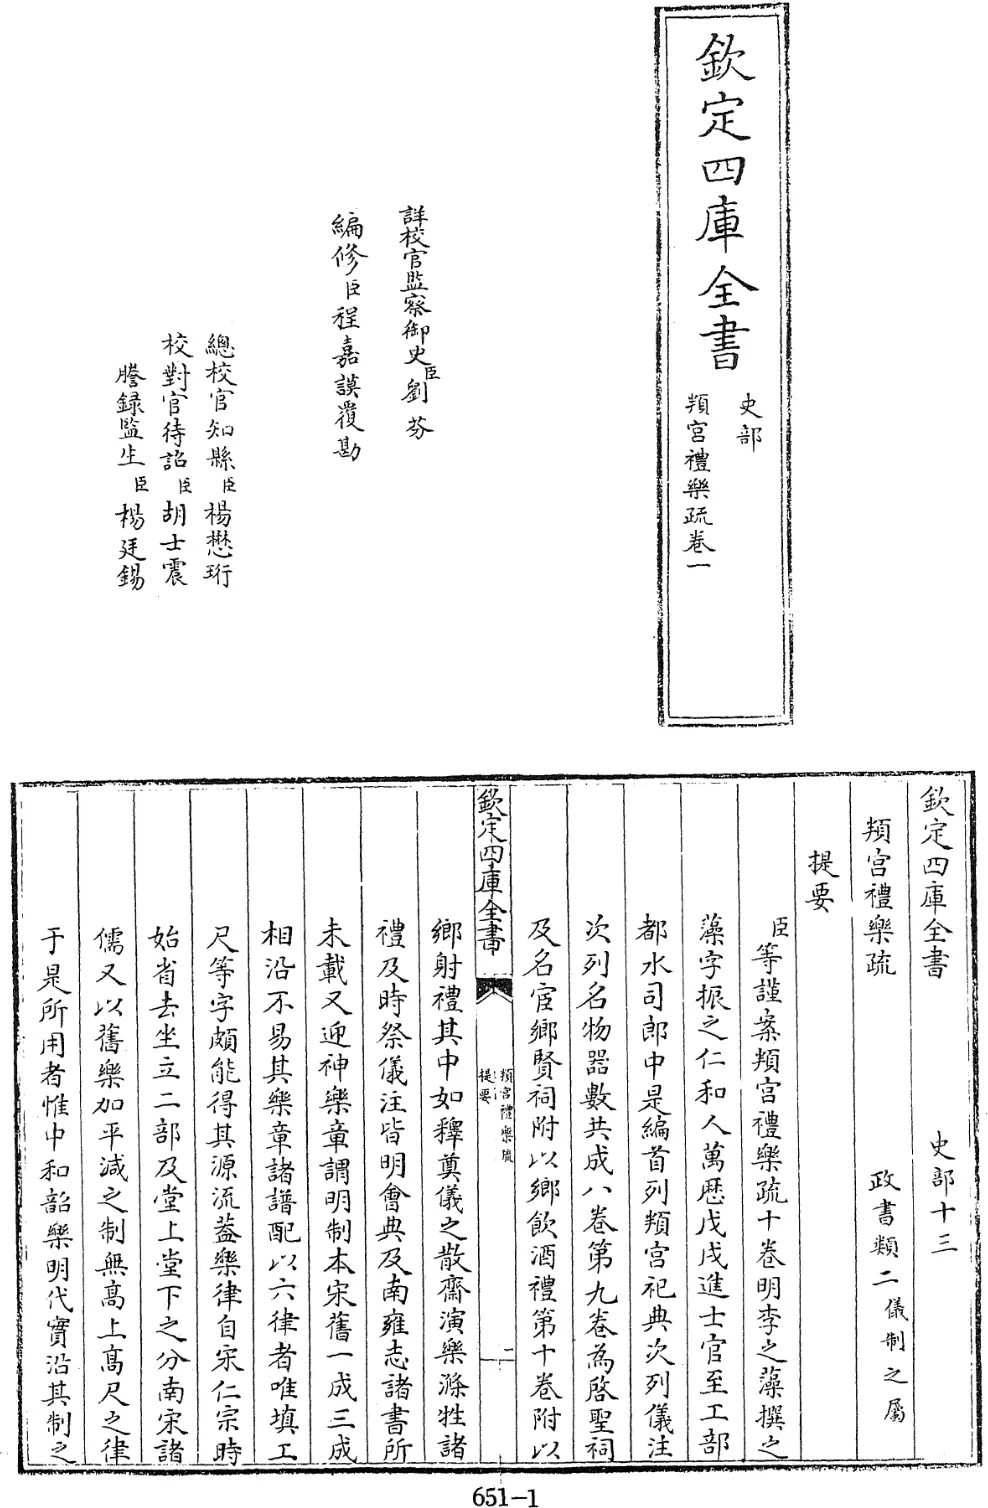 欽定四庫全書
史部
頖宮禮樂疏卷一
詳校官監察御史臣劉芬
編修臣程嘉謨覆勘
總校官知縣臣楊懋珩
校對官待詔臣胡士震
謄録監生臣楊廷錫
欽定四庫全書 史部十三
頖宮禮樂疏 政書類二儀制之屬
提要
臣等謹案頖宮禮樂疏十卷明李之藻撰之
藻字振之仁和人萬厯戊戌進士官至工部
都水司郎中是編首列頖宮祀典次列儀注
次列名物器數共成八卷第九卷為啓聖祠
及名宦鄉賢祠附以鄉飲酒禮第十卷附以
欽定四庫全書
頖宮禮樂疏
提要
一
鄉射禮其中如釋奠儀之散齋演樂滌牲諸
禮及時祭儀注皆明會典及南雍志諸書所
未載又迎神樂章謂明制本宋舊一成三成
相沿不易其樂章諸譜配以六律者唯填工
尺等字頗能得其源流葢樂律自宋仁宗時
始省去坐立二部及堂上堂下之分南宋諸
儒又以舊樂加平減之制無高上高尺之律
于是所用者惟中和韶樂明代實沿其制之
651-1